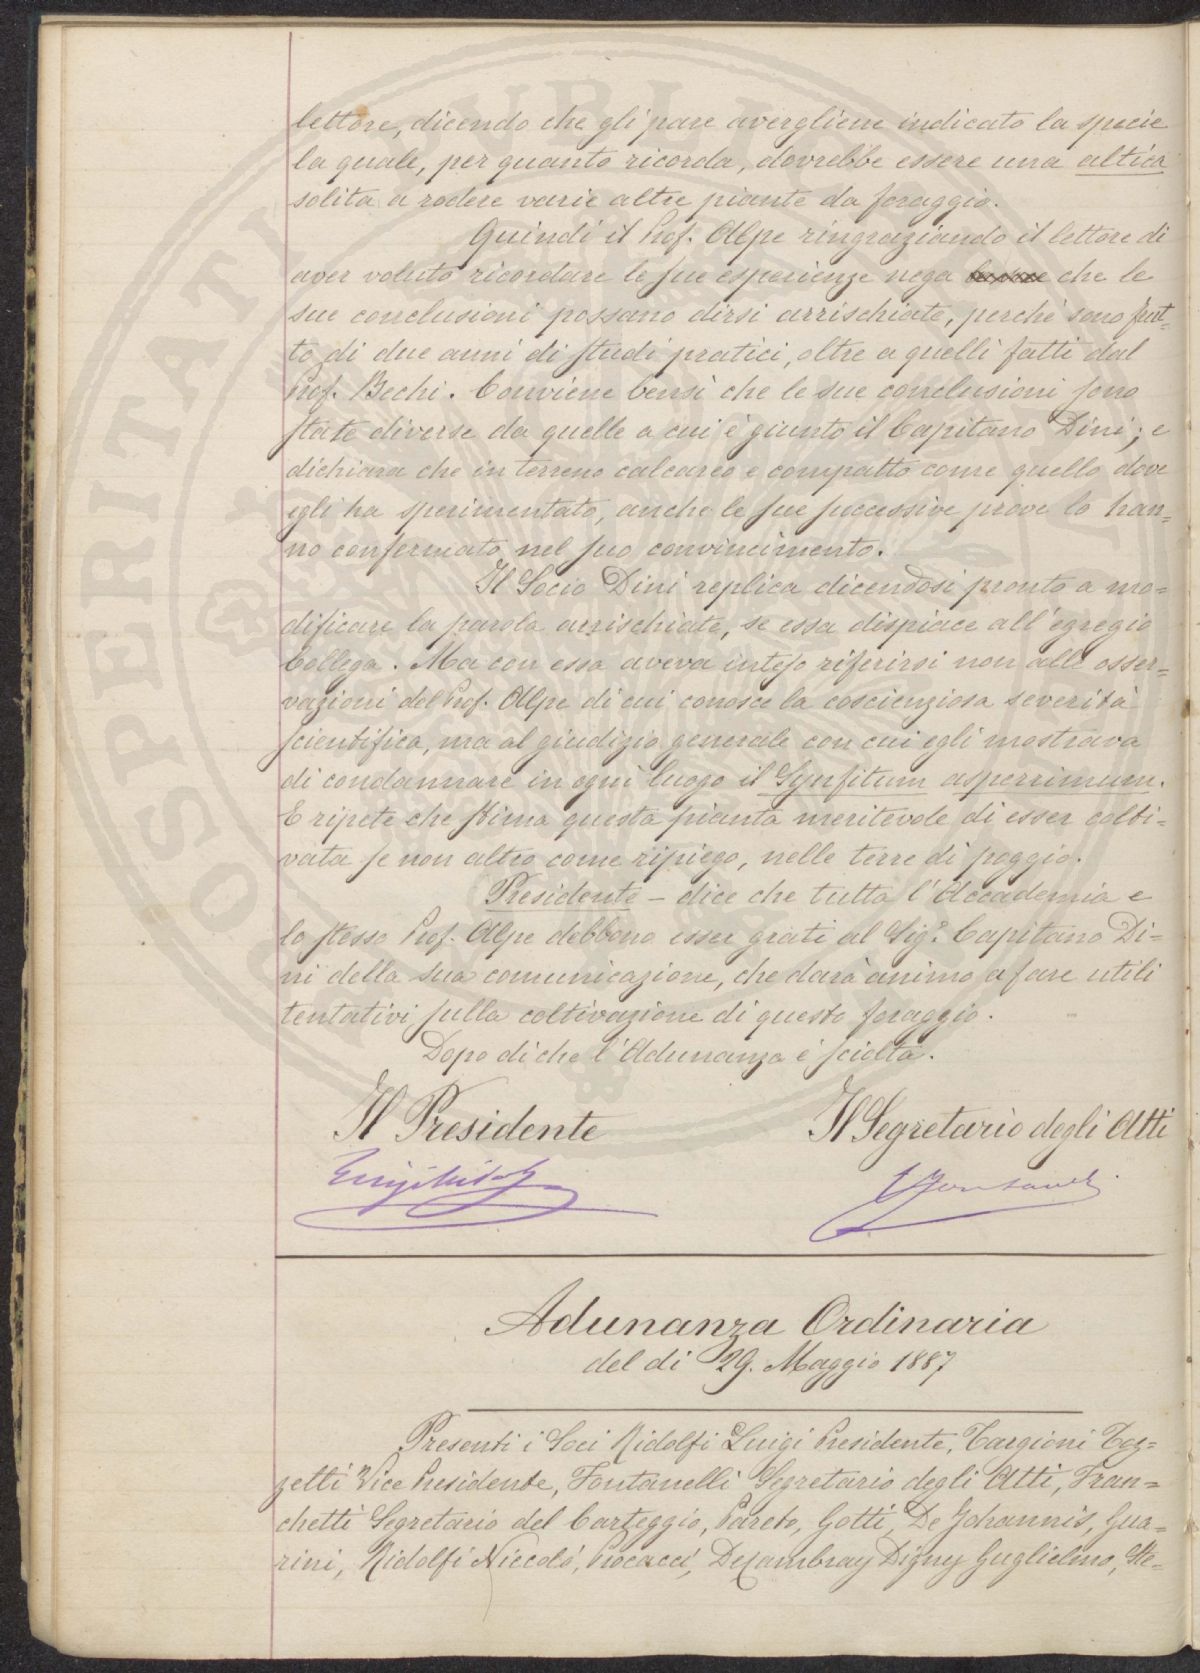 lettore, dicendo che gli pare avergliene indicato la specie
la quale, per quanto ricorda, dovrebbe essere una altica
solita a rodere varie altre piante da foraggio.
Quindi il Prof. Alpe ringraziando il lettore di
aver voluto ricordare le sue esperienze nega che le
sue conclusioni possano dirsi arrischiate, perchè sono frut=
to di due anni di studi pratici, oltre a quelli fatti dal
Prof. Bechi. Conviene bensì che le sue conclusioni sono
state diverse da quelle a cui è giunto il Capitano Dini; e
dichiara che in terreno calcareo e compatto come quello dove
egli ha sperimentato, anche le sue successive prove lo han=
no confermato nel suo convincimento.
Il Socio Dini replica dicendosi pronto a mo=
dificare la parola arrischiate, se essa dispiace all'egregio
Collega. Ma con essa aveva inteso riferirsi non alle osser=
vazioni del Prof. Alpe di cui conosce la coscienziosa severità
scientifica, ma al giudizio generale con cui egli mostrava
di condannare in ogni luogo il Synfitum asperrimum.
E ripete che stima questa pianta meritevole di esser colti=
vata se non altro come ripiego, nelle terre di poggio.
Presidente - dice che tutta l'Accademia e
lo stesso Prof. Alpe debbono esser grati al Sig.r Capitano Di=
ni della sua comunicazione, che darà animo a fare utili
tentativi sulla coltivazione di questo foraggio.
Dopo di che l'Adunanza è sciolta.
Il Presidente
Il Segretario degli Atti
Luigi Ridolfi
Fontanelli
Adunanza Ordinaria
del dì 29. Maggio 1887
Presenti i Soci Ridolfi Luigi Presidente, Targioni Toz=
zetti Vice Presidente, Fontanelli Segretario degli Atti, Fran=
chetti Segretario del Carteggio, Pareto, Gotti, De Johannis, Gua=
rini, Ridolfi Niccolò, Procacci, De Cambray Digny Guglielmo, Ste=
PROSPERITATI PUBLI